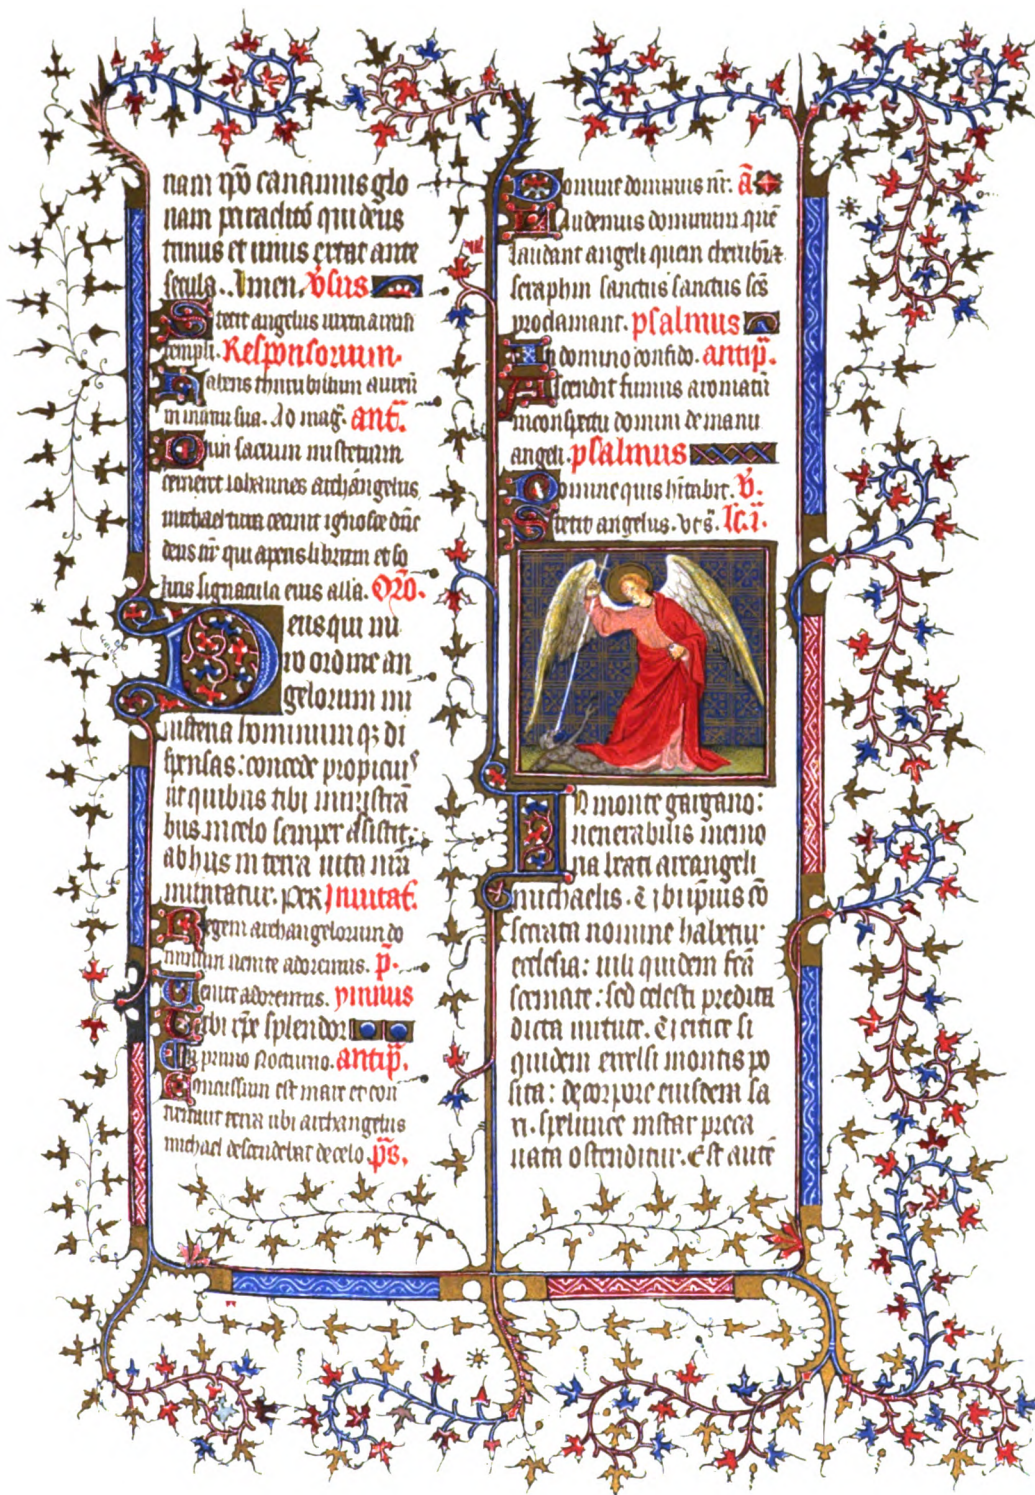 riam qꝫ canamus glo
riam paraclito qui deus
trinus et unus extat ante
secula. Amen. Vsus
Stetit angelus iuxta aram
templi. Responsorium.
Habens thuribulum aureū
in manu sua. Ad mag̃. ant̃.
Dum sacrum misterium
cerneret iohannes archangelus
michael tuba cecinit ignosce dñe
deus nr̃ qui aperis librum et so
luis signacula eius alla. Orõ.
Deus qui mi
ro ordine an
gelorum mi
nisteria hominum qꝫ di
spensas: concede propicius
ut quibus tibi ministrā
bus in celo semper assistit:
ab hiis in terra uita nr̃a
muniatur. Per Inuitat̃.
Regem archangelorum do
minum uenite adoremus. p̃.
Uenite adoremus. ymnus
Tibi xp̃e splendor
In primo Nocturno. antip̃.
Concussum est mare et con
tremuit terra ubi archangelus
michael descendebat de celo. p̃s.
Domine dominus nr̃. ã
Laudemus dominum quē
laudant angeli quem cherubin et
seraphin sanctus sanctus sc̃s
proclamant. psalmus
In domino confido. antip̃.
Ascendit fumus aromatū
in conspectu domini de manu
angeli. psalmus
Domine quis hītabit. V̄.
Stetit angelus. vr̃s. lc̃. i.
In monte gargano:
uenerabilis memo
ria beati arcangeli
michaelis. et ibi ipsius cō
secrata nomine habetur
ecclesia: uili quidem frā
scemate: sed celesti predita
dicta uirtute. et iertice si
quidem excelsi montis po
sita: de corpore eiusdem sa
xi. spelunce instar preca
uata ostenditur. Est autē